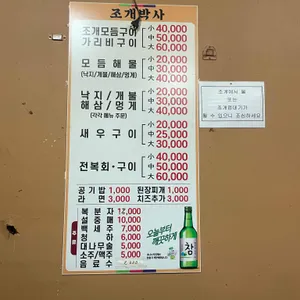 조개박사
조개모듬구이 小 40,000
가리비구이 中 50,000
大 60,000
모듬해물 小 30,000
(낙지/개불/해삼/멍게) 中 40,000
大 50,000
낙지/개불 小 20,000
해삼/멍게 中 30,000
(각각 메뉴 주문) 大 40,000
小 20,000
새우구이 中 25,000
大 30,000
小 40,000
전복회·구이 中 50,000
大 60,000
공기밥 1,000 된장찌개 1,000
라면 3,000 치즈추가 3,000
복분자 12,000
설중매 10,000
백세주 7,000
청하 6,000
대나무술 5,000
소주/맥주 5,000
음료수
오늘부터
깨끗하게
참
조개에서 물
또는
조개껍데기가
튈 수 있으니 조심하세요